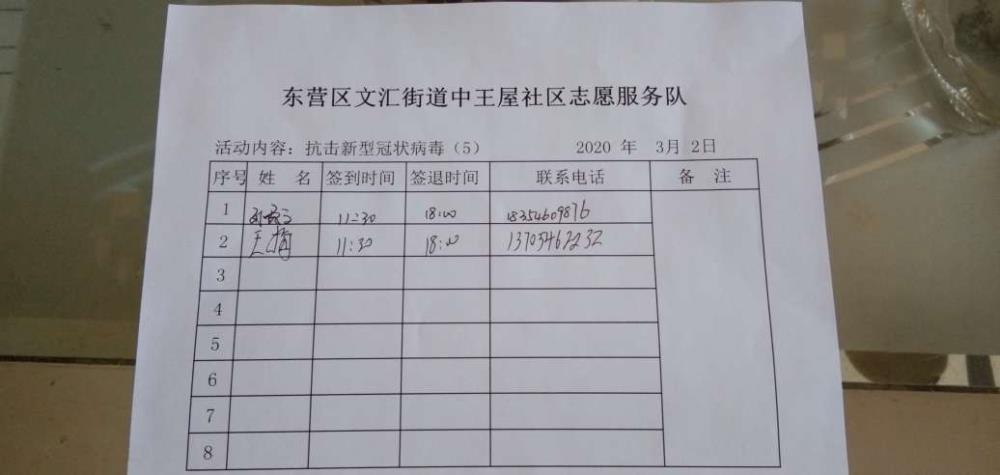 东营区文汇街道中王屋社区志愿服务队
活动内容：抗击新型冠状病毒（5） 2020 年 3月 2日
序号 姓 名 签到时间 签退时间 联系电话 备 注
1 11:30 18:00 18354609876
2 王梅 11:30 18:00 13703462232
3
4
5
6
7
8